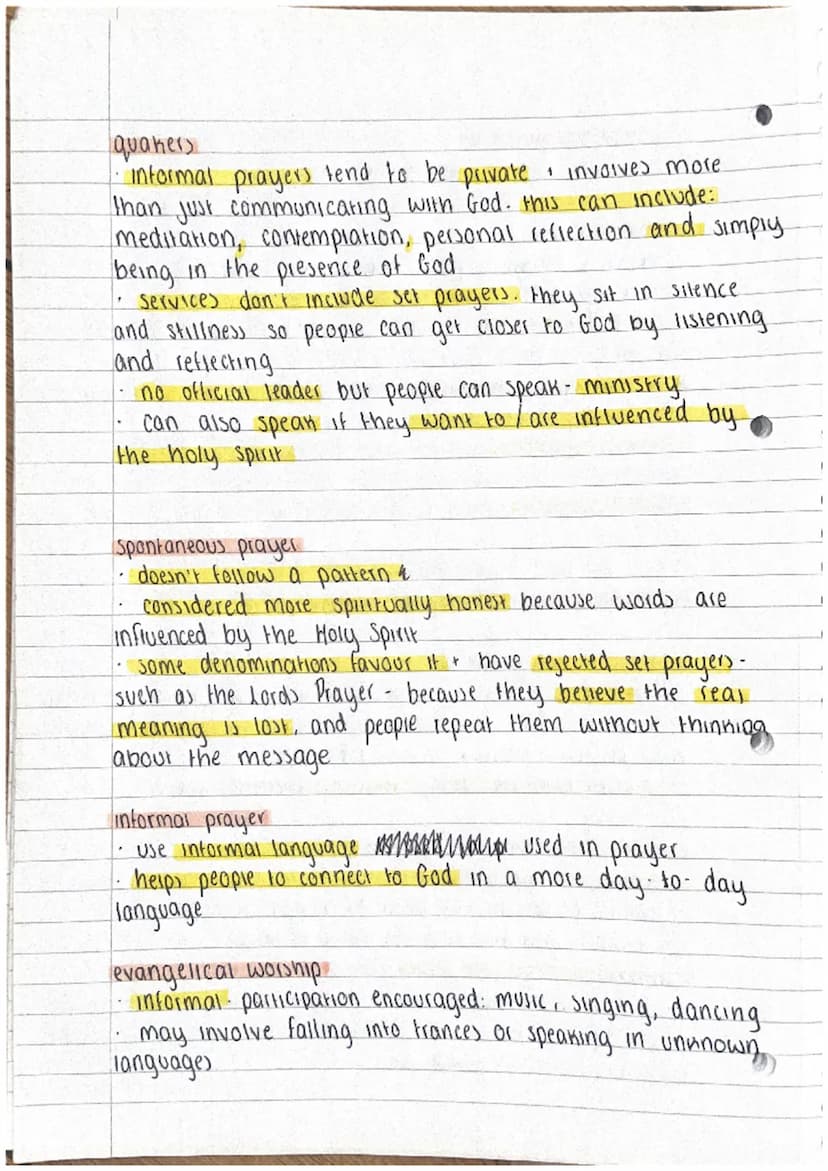 quakers
· informal prayers tend to be private + involves more
than just communicating with God. this can include:
meditation, contemplation, personal reflection and simply
being in the presence of God
· services don't include set prayers. they sit in silence
and stillness so people can get closer to God by listening
and reflecting
· no official leader but people can speak - ministry
· can also speak if they want to / are influenced by
the holy spirit
spontaneous prayer
· doesn't follow a pattern &
· considered more spiritually honest because words are
influenced by the Holy Spirit
· some denominations favour it + have rejected set prayers -
such as the Lords Prayer - because they believe the real
meaning is lost, and people repeat them without thinking
about the message
informal prayer
· use informal language used in prayer
· helps people to connect to God in a more day-to-day
language
evangelical worship
· informal · participation encouraged: music, singing, dancing
· may involve falling into trances or speaking in unknown
languages